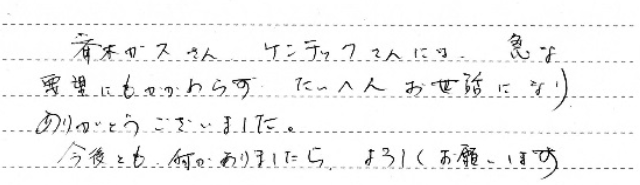 斉木ガスさん ケンテックさんには、急な
要望にもかかわらず たいへん お世話になり
ありがとうございました。
今後とも 何かありましたら、よろしくお願いします